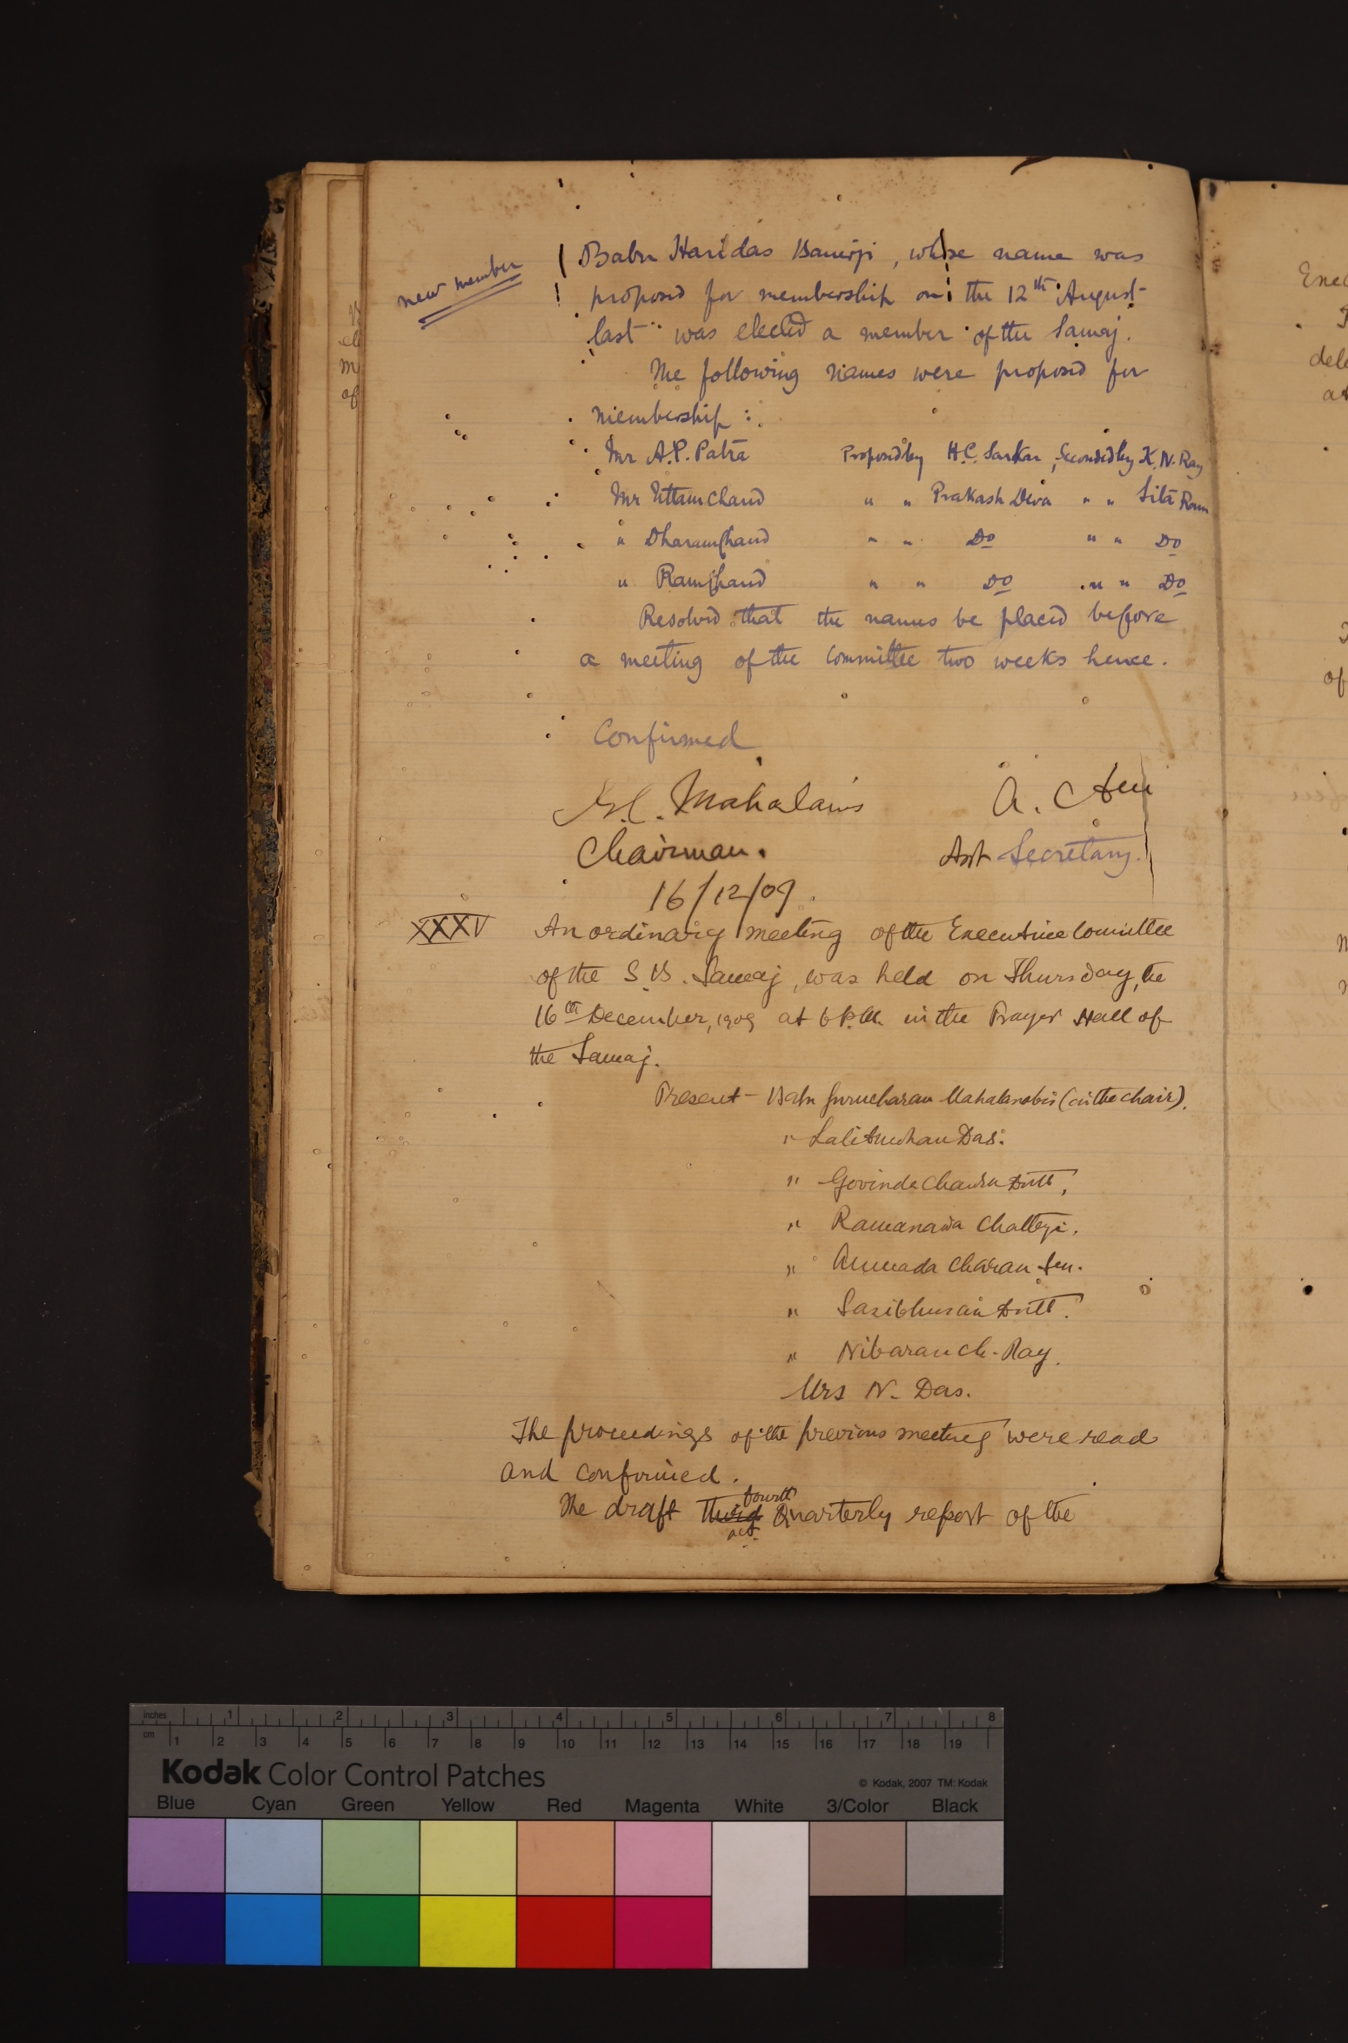 new member
Babu Haridas Banerji, whose name was
proposed for membership on the 12th August
last was elected a member of the Samaj.
The following names were proposed for
membership :
Mr A.P. Patra Proposed by H.C. Sarkar, Seconded by K.N. Ray
Mr Uttamchand " " Prakash Deva " " Sita Ram
" Dharamchand " " Do " " Do
" Ramchand " " Do " " Do
Resolved that the names be placed before
a meeting of the Committee two weeks hence.
Confirmed
G.C. Mahalanis A. C. Sen
Chairman. Asst Secretary.
16/12/09.
XXXV An ordinary meeting of the Executive Committee
of the S. B. Samaj, was held on Thursday, the
16th December, 1909 at 6 P.M. in the Prayer Hall of
the Samaj.
Present - Babu Gurucharan Mahalanobis (in the chair).
" Lalitmohan Das.
" Govinda Chandra Dutt,
" Ramananda Chatterji.
" Annada Charan Sen.
" Sasibhusan Dutt.
" Nibaran Ch. Ray.
Mrs N. Das.
The proceedings of the previous meeting were read
and confirmed.
fourth
The draft Third Quarterly report of the
inches 1 2 3 4 5 6 7 8
cm 1 2 3 4 5 6 7 8 9 10 11 12 13 14 15 16 17 18 19
Kodak Color Control Patches © Kodak, 2007 TM: Kodak
Blue Cyan Green Yellow Red Magenta White 3/Color Black